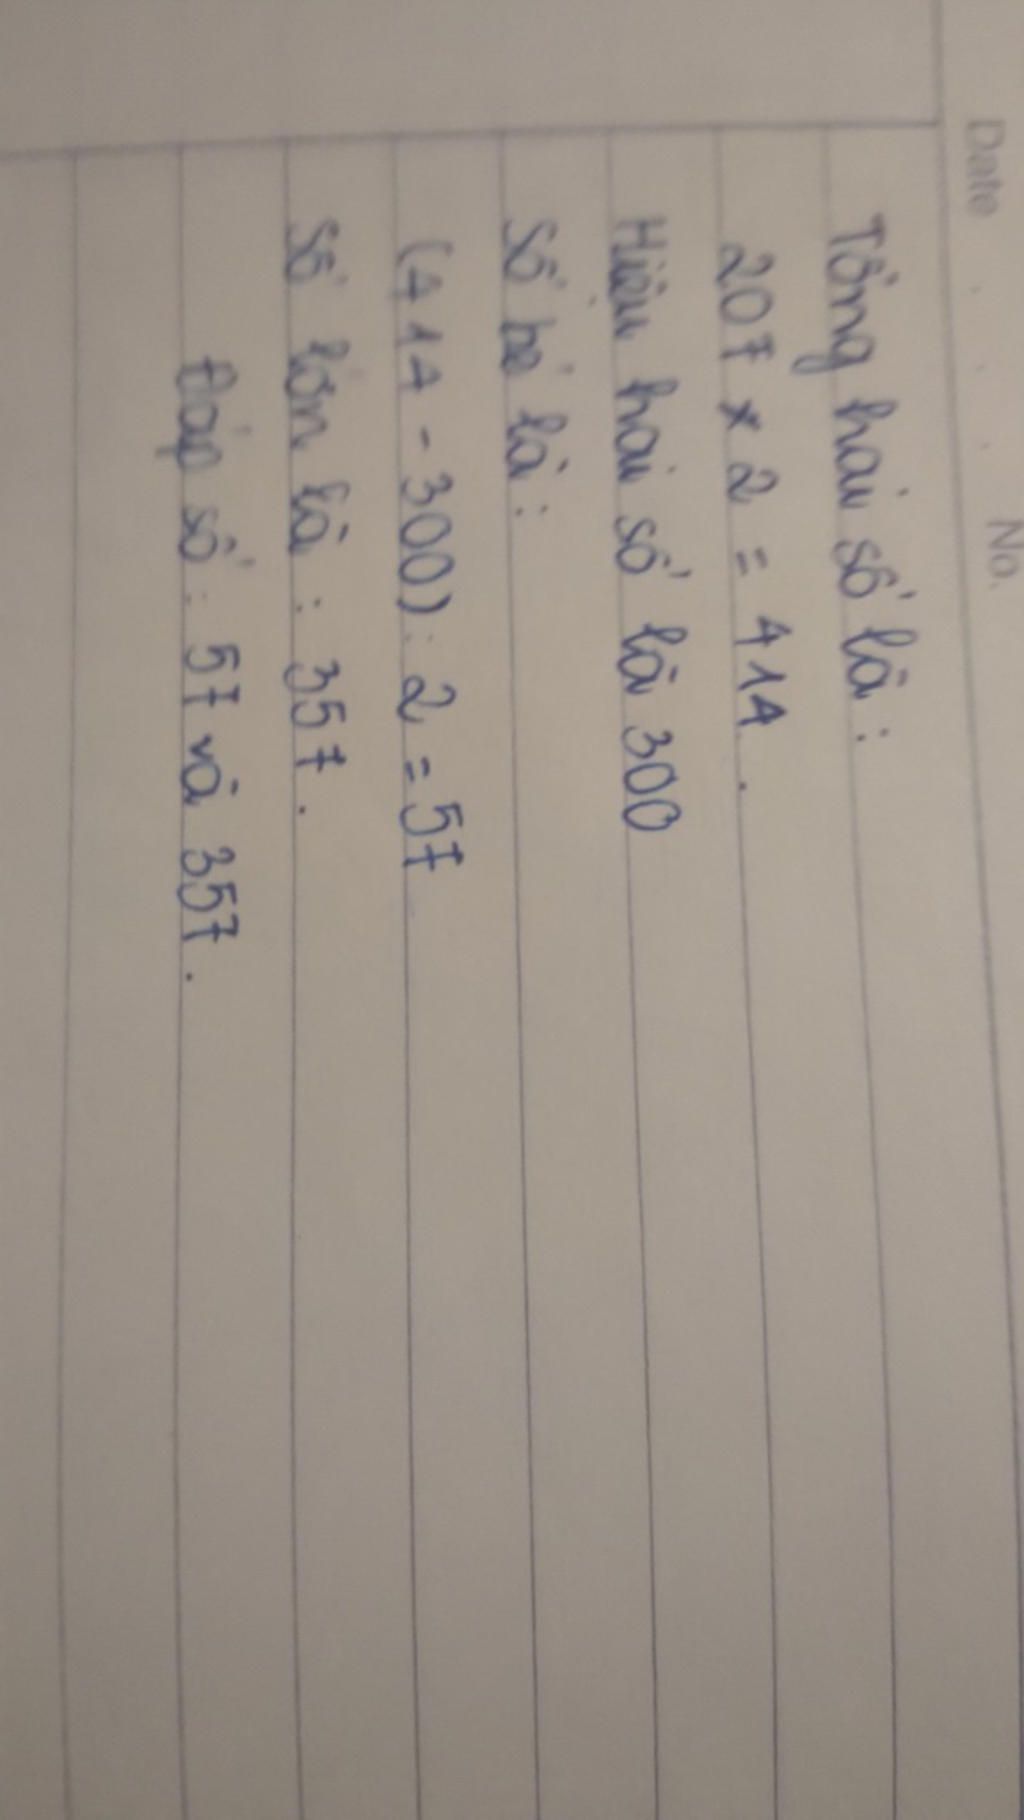 Date No.
Tổng hai số là:
207 × 2 = 414.
Hiệu hai số là 300
Số bé là:
(414 - 300) : 2 = 57
Số lớn là : 357.
Đáp số : 57 và 357.